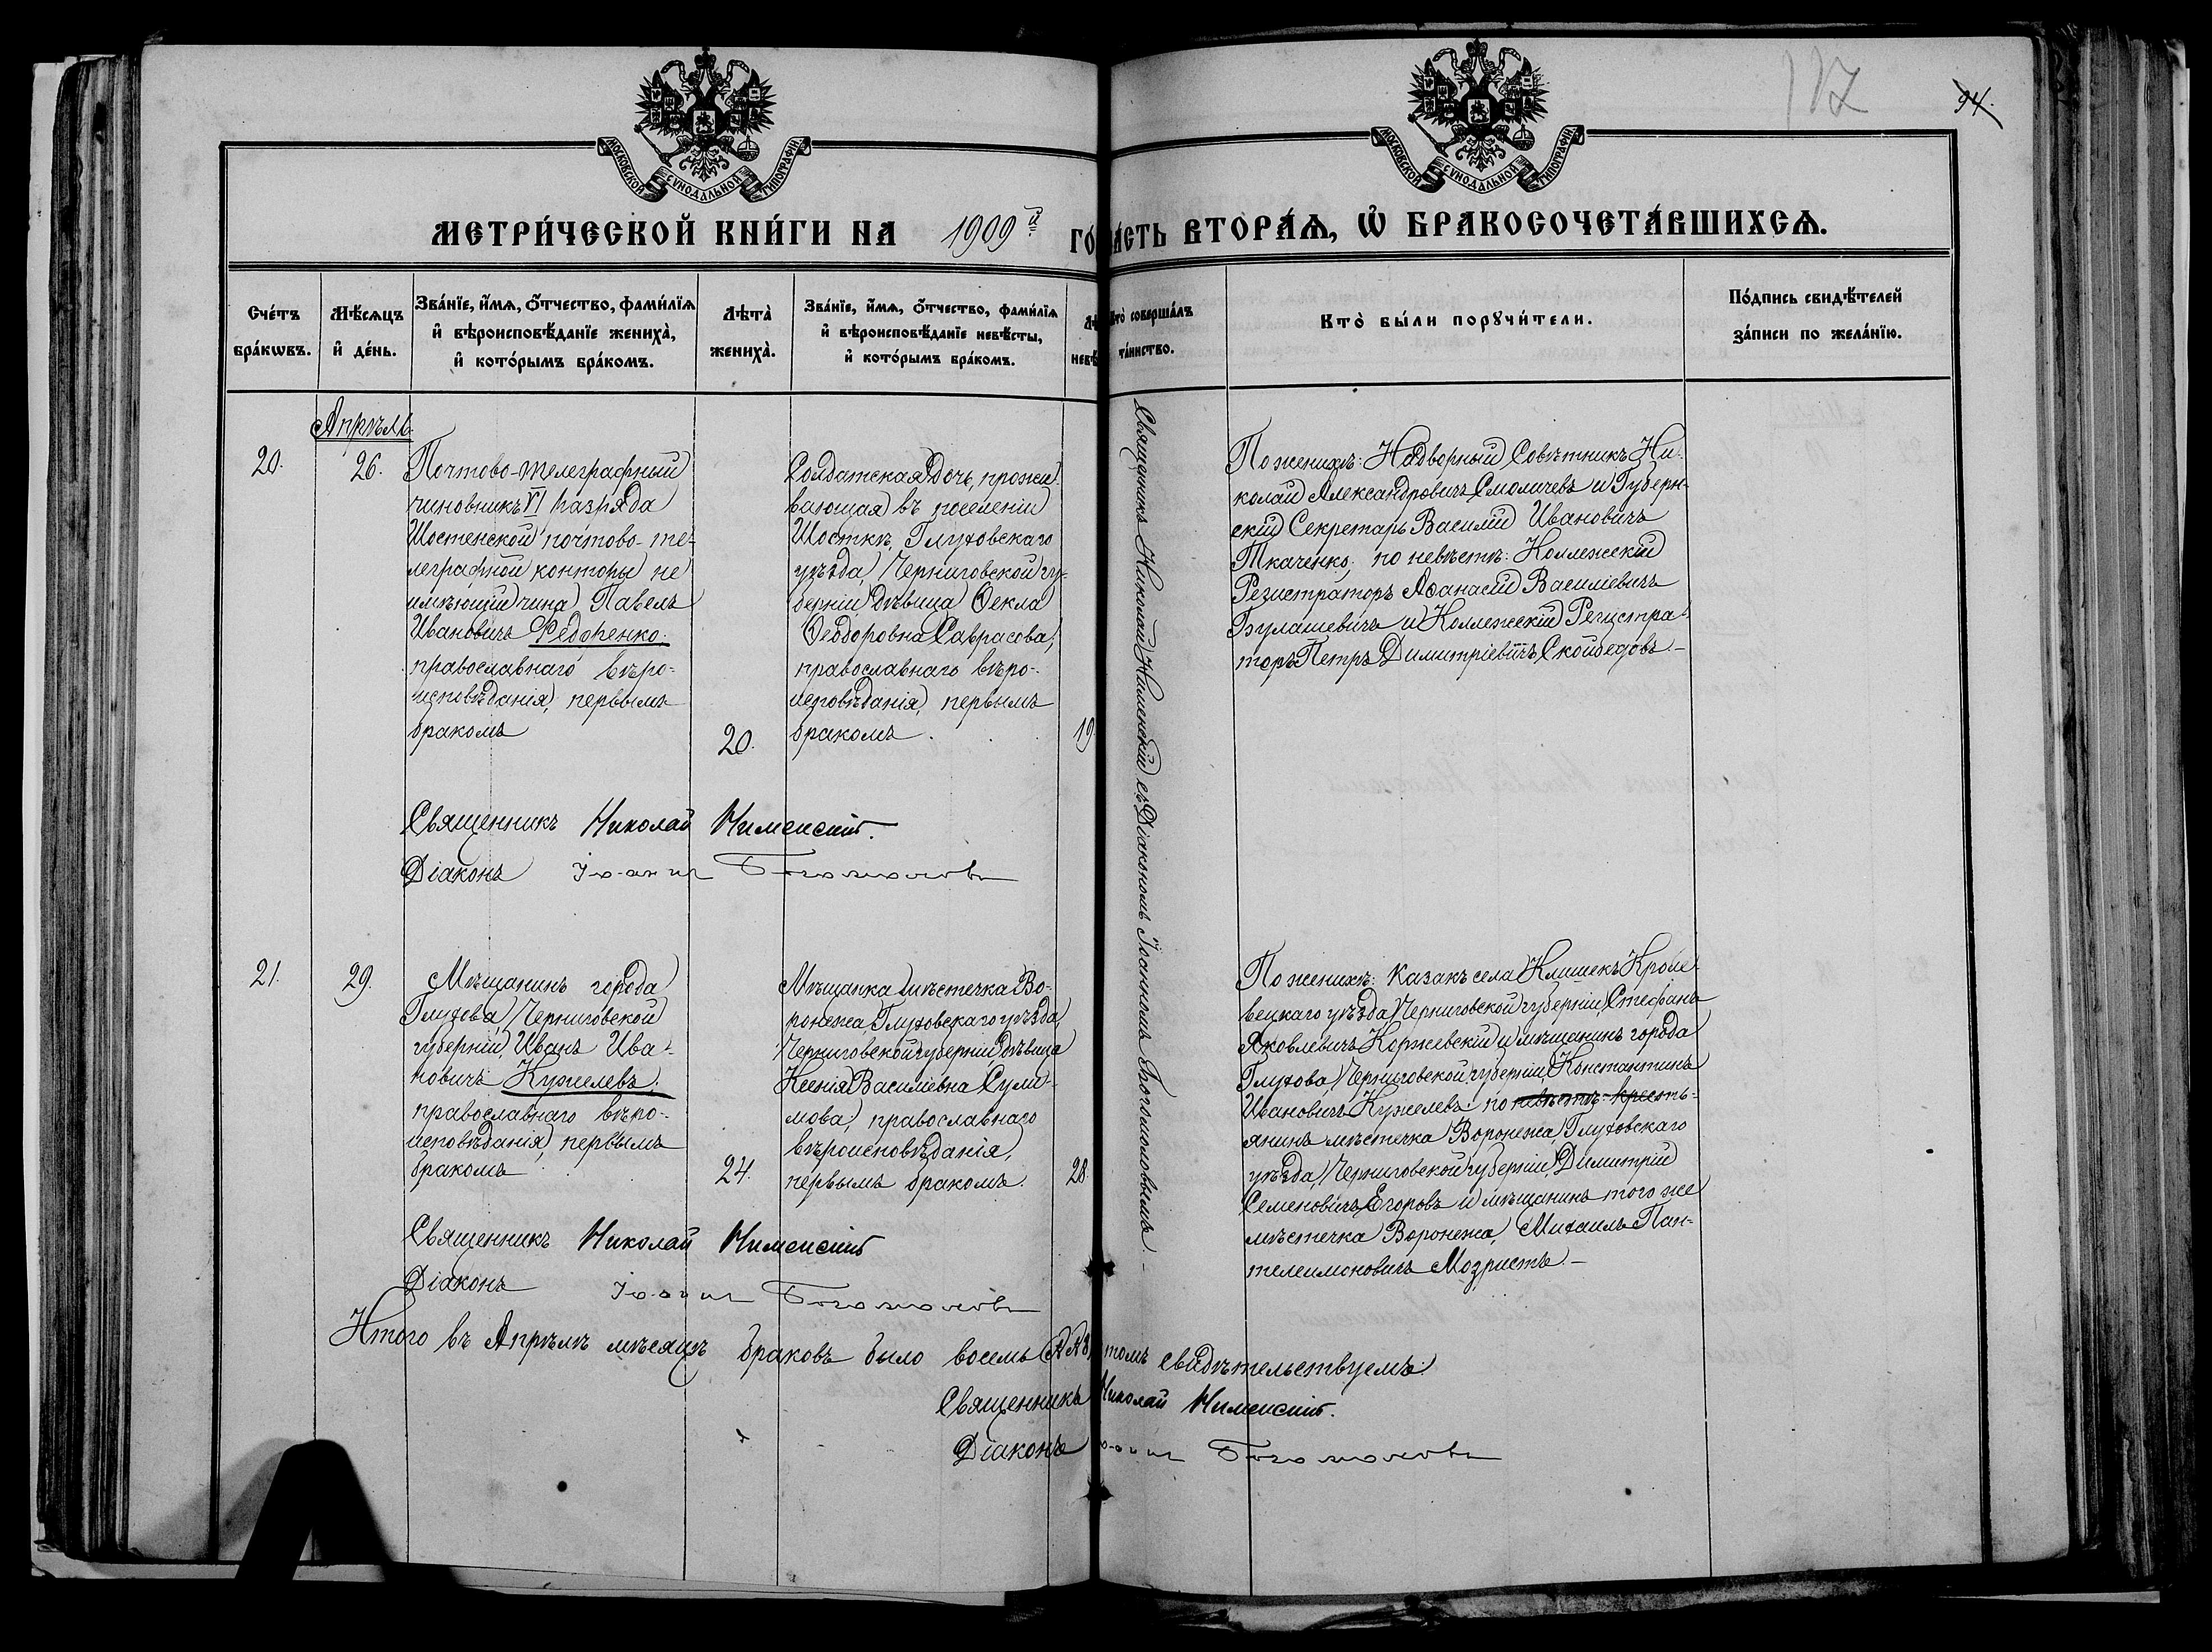 117
94.
МОСКОВСКОЙ СѴНОДАЛЬНОЙ ТИПОГРАФІИ
МОСКОВСКОЙ СѴНОДАЛЬНОЙ ТИПОГРАФІИ
МЕТРИ́ЧЕСКОЙ КНИ́ГИ НА 1909й ГО́
А́СТЬ ВТОРА́Ѧ, Ѽ БРАКОСОЧЕТА́ВШИХСѦ.
Сче́тъ
бра́кѡвъ.
Мѣ́сѧцъ
и҆ де́нь.
Зва́нїе, и҆́мѧ, ѻ҆́тчество, фами́лїѧ
и҆ вѣроисповѣ́данїе жениха̀,
и҆ кото́рымъ бра́комъ.
Лѣта̀
жениха̀.
Зва́нїе, и҆́мѧ, ѻ҆́тчество, фами́лїѧ
и҆ вѣроисповѣ́данїе невѣ́сты,
и҆ кото́рымъ бра́комъ.
Лѣ
невѣ
Кто̀ соверша́лъ
та́инство.
Кто̀ бы́ли порꙋчи́тели.
По́дпись свидѣ́телей
за́писи по жела́нїю.
Апрѣль
20.
26.
Почтово-телеграфный
чиновникъ VI разряда
Шостенской почтово-те-
леграфной конторы не
имѣющій чина, Павелъ
Ивановичъ Федоренко.
православнаго вѣро-
исповѣданія, первымъ
бракомъ
20.
Солдатская дочь, прожи-
вающая въ поселеніи
Шосткѣ, Глуховскаго
уѣзда, Черниговской гу-
берніи дѣвица Ѳекла
Ѳеодоровна Саврасова,
православнаго вѣро-
исповѣданія, первымъ
бракомъ.
19.
Священникъ Николай Нименскій съ Діакономъ Іоанномъ Богомоловымъ.
По женихѣ: Надворный Совѣтникъ Ни-
колай Александровичъ Смоличевъ и Губерн-
скій Секретарь Василій Ивановичъ
Ткаченко; по невѣстѣ: Коллежскій
Регистраторъ Аѳанасій Василіевичъ
Булашевичъ и Коллежскій Регистра-
торъ Петръ Димитріевичъ Скойбедовъ.-
Священникъ Николай Нименскій.
Діаконъ Іоаннъ Богомоловъ
21.
29.
Мѣщанинъ города
Глухова, Черниговской
губерніи, Иванъ Ива-
новичъ Кужелевъ.
православнаго вѣро-
исповѣданія, первымъ
бракомъ
24.
Мѣщанка мѣстечка Во-
ронежа, Глуховскаго уѣзда,
Черниговской губерніи дѣвица
Ксенія Василіевна Сули-
мова, православнаго
вѣроисповѣданія,
первымъ бракомъ.
28.
По женихѣ: казакъ села Клишекъ Кроле-
вецкаго уѣзда, Черниговской губерніи, Стефанъ
Яковлевичъ Коржевскій и мѣщанинъ города
Глухова, Черниговской губерніи, Константинъ
Ивановичъ Кужелевъ; по невѣстѣ: кресть-
янинъ мѣстечка Воронежа, Глуховскаго
уѣзда, Черниговской губерніи, Димитрій
Семеновичъ Егоровъ и мѣщанинъ того же
мѣстечка Воронежа, Михаилъ Пан-
телеимоновичъ Мозристъ.-
Священникъ Николай Нименскій
Діаконъ Іоаннъ Богомоловъ
Итого въ Апрѣлѣ мѣсяцѣ браковъ было восемь томъ свидѣтельствуемъ:
Священникъ Николай Нименскій.
Діаконъ Іоаннъ Богомоловъ